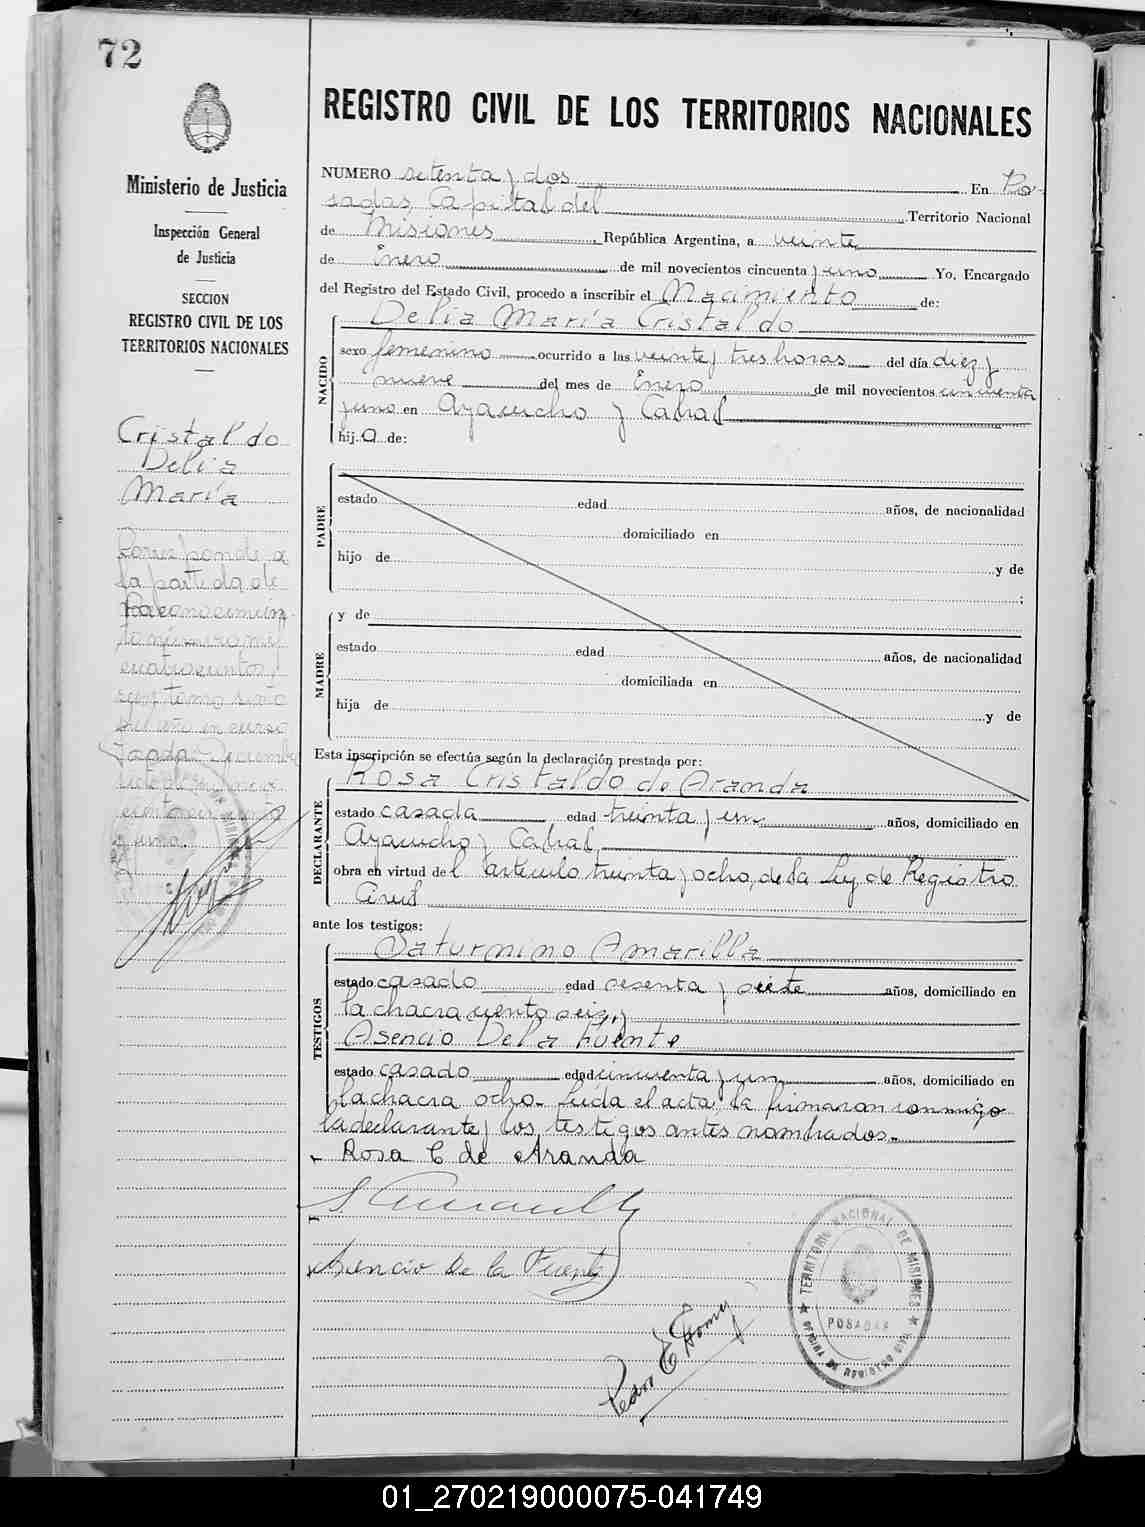 72
REGISTRO CIVIL DE LOS TERRITORIOS NACIONALES
Ministerio de Justicia
Inspección General
de Justicia
SECCION
REGISTRO CIVIL DE LOS
TERRITORIOS NACIONALES
Cristaldo
Delia
María
Corresponde a
la partida de
Reconocimien-
to número mil
cuatrocientos
tomo sexto
del año en curso
Posadas Diciembre
siete de mil nove
cientos cincuenta
y uno.
NUMERO setenta y dos En Po-
sadas, Capital del Territorio Nacional
de Misiones República Argentina, a veinte
de Enero de mil novecientos cincuenta y uno Yo, Encargado
del Registro del Estado Civil, procedo a inscribir el Nacimiento de:
NACIDO
Delia María Cristaldo
sexo femenino ocurrido a las veinte y tres horas del día diez y
nueve del mes de Enero de mil novecientos cincuenta
y uno en Ayacucho y Cabral
hija de:
PADRE
estado edad años, de nacionalidad
domiciliado en
hijo de y de
;
MADRE
y de
estado edad años, de nacionalidad
domiciliada en
hija de y de
Esta inscripción se efectúa según la declaración prestada por:
DECLARANTE
Rosa Cristaldo de Aranda
estado casada edad treinta y un años, domiciliado en
Ayacucho y Cabral
obra en virtud del artículo treinta y ocho, de la Ley de Registro
Civil
ante los testigos:
TESTIGOS
Saturnino Amarilla
estado casado edad sesenta y siete años, domiciliado en
la chacra ciento seis, y
Asencio De la Fuente
estado casado edad cincuenta y un años, domiciliado en
la chacra ocho. Leída el acta, la firmaron conmigo
la declarante y los testigos antes nombrados.
Rosa C de Aranda
S. Amarilla
Asencio de la Fuente
TERRITORIO NACIONAL DE MISIONES
POSADAS
01_270219000075-041749